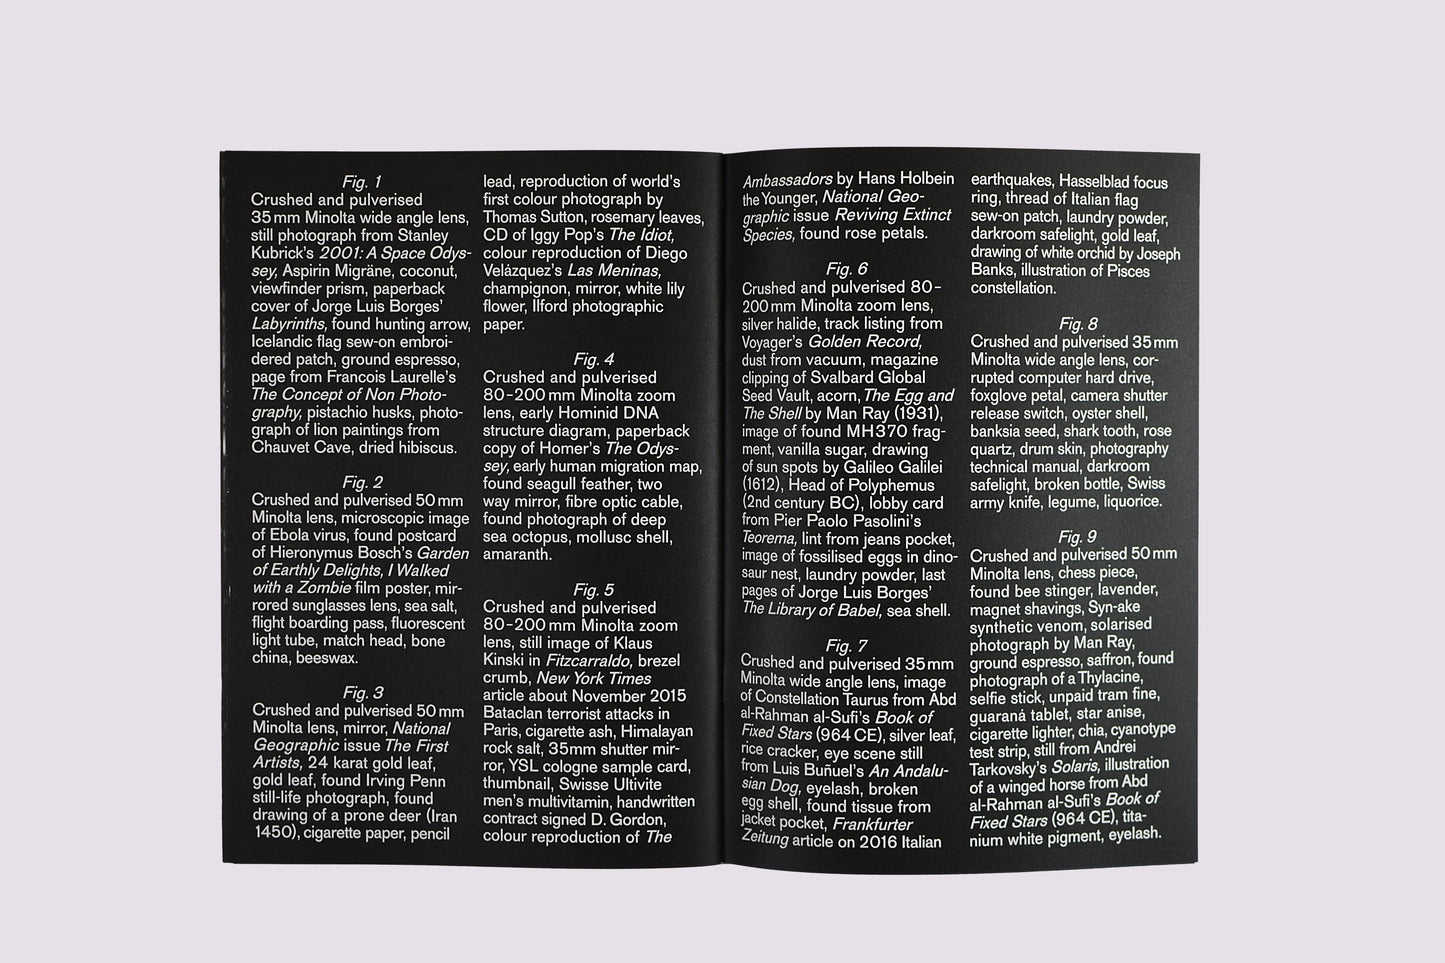 Fig. 1
Crushed and pulverised
35 mm Minolta wide angle lens,
still photograph from Stanley
Kubrick's 2001: A Space Odys-
sey, Aspirin Migräne, coconut,
viewfinder prism, paperback
cover of Jorge Luis Borges'
Labyrinths, found hunting arrow,
Icelandic flag sew-on embroi-
dered patch, ground espresso,
page from Francois Laurelle's
The Concept of Non Photo-
graphy, pistachio husks, photo-
graph of lion paintings from
Chauvet Cave, dried hibiscus.
Fig. 2
Crushed and pulverised 50 mm
Minolta lens, microscopic image
of Ebola virus, found postcard
of Hieronymus Bosch's Garden
of Earthly Delights, I Walked
with a Zombie film poster, mir-
rored sunglasses lens, sea salt,
flight boarding pass, fluorescent
light tube, match head, bone
china, beeswax.
Fig. 3
Crushed and pulverised 50 mm
Minolta lens, mirror, National
Geographic issue The First
Artists, 24 karat gold leaf,
gold leaf, found Irving Penn
still-life photograph, found
drawing of a prone deer (Iran
1450), cigarette paper, pencil
lead, reproduction of world's
first colour photograph by
Thomas Sutton, rosemary leaves,
CD of Iggy Pop's The Idiot,
colour reproduction of Diego
Velázquez's Las Meninas,
champignon, mirror, white lily
flower, Ilford photographic
paper.
Fig. 4
Crushed and pulverised
80–200 mm Minolta zoom
lens, early Hominid DNA
structure diagram, paperback
copy of Homer's The Odys-
sey, early human migration map,
found seagull feather, two
way mirror, fibre optic cable,
found photograph of deep
sea octopus, mollusc shell,
amaranth.
Fig. 5
Crushed and pulverised
80–200 mm Minolta zoom
lens, still image of Klaus
Kinski in Fitzcarraldo, brezel
crumb, New York Times
article about November 2015
Bataclan terrorist attacks in
Paris, cigarette ash, Himalayan
rock salt, 35mm shutter mir-
ror, YSL cologne sample card,
thumbnail, Swisse Ultivite
men's multivitamin, handwritten
contract signed D. Gordon,
colour reproduction of The
Ambassadors by Hans Holbein
the Younger, National Geo-
graphic issue Reviving Extinct
Species, found rose petals.
Fig. 6
Crushed and pulverised 80–
200 mm Minolta zoom lens,
silver halide, track listing from
Voyager's Golden Record,
dust from vacuum, magazine
clipping of Svalbard Global
Seed Vault, acorn, The Egg and
The Shell by Man Ray (1931),
image of found MH370 frag-
ment, vanilla sugar, drawing
of sun spots by Galileo Galilei
(1612), Head of Polyphemus
(2nd century BC), lobby card
from Pier Paolo Pasolini's
Teorema, lint from jeans pocket,
image of fossilised eggs in dino-
saur nest, laundry powder, last
pages of Jorge Luis Borges'
The Library of Babel, sea shell.
Fig. 7
Crushed and pulverised 35 mm
Minolta wide angle lens, image
of Constellation Taurus from Abd
al-Rahman al-Sufi's Book of
Fixed Stars (964 CE), silver leaf,
rice cracker, eye scene still
from Luis Buñuel's An Andalu-
sian Dog, eyelash, broken
egg shell, found tissue from
jacket pocket, Frankfurter
Zeitung article on 2016 Italian
earthquakes, Hasselblad focus
ring, thread of Italian flag
sew-on patch, laundry powder,
darkroom safelight, gold leaf,
drawing of white orchid by Joseph
Banks, illustration of Pisces
constellation.
Fig. 8
Crushed and pulverised 35 mm
Minolta wide angle lens, cor-
rupted computer hard drive,
foxglove petal, camera shutter
release switch, oyster shell,
banksia seed, shark tooth, rose
quartz, drum skin, photography
technical manual, darkroom
safelight, broken bottle, Swiss
army knife, legume, liquorice.
Fig. 9
Crushed and pulverised 50 mm
Minolta lens, chess piece,
found bee stinger, lavender,
magnet shavings, Syn-ake
synthetic venom, solarised
photograph by Man Ray,
ground espresso, saffron, found
photograph of a Thylacine,
selfie stick, unpaid tram fine,
guaraná tablet, star anise,
cigarette lighter, chia, cyanotype
test strip, still from Andrei
Tarkovsky's Solaris, illustration
of a winged horse from Abd
al-Rahman al-Sufi's Book of
Fixed Stars (964 CE), tita-
nium white pigment, eyelash.